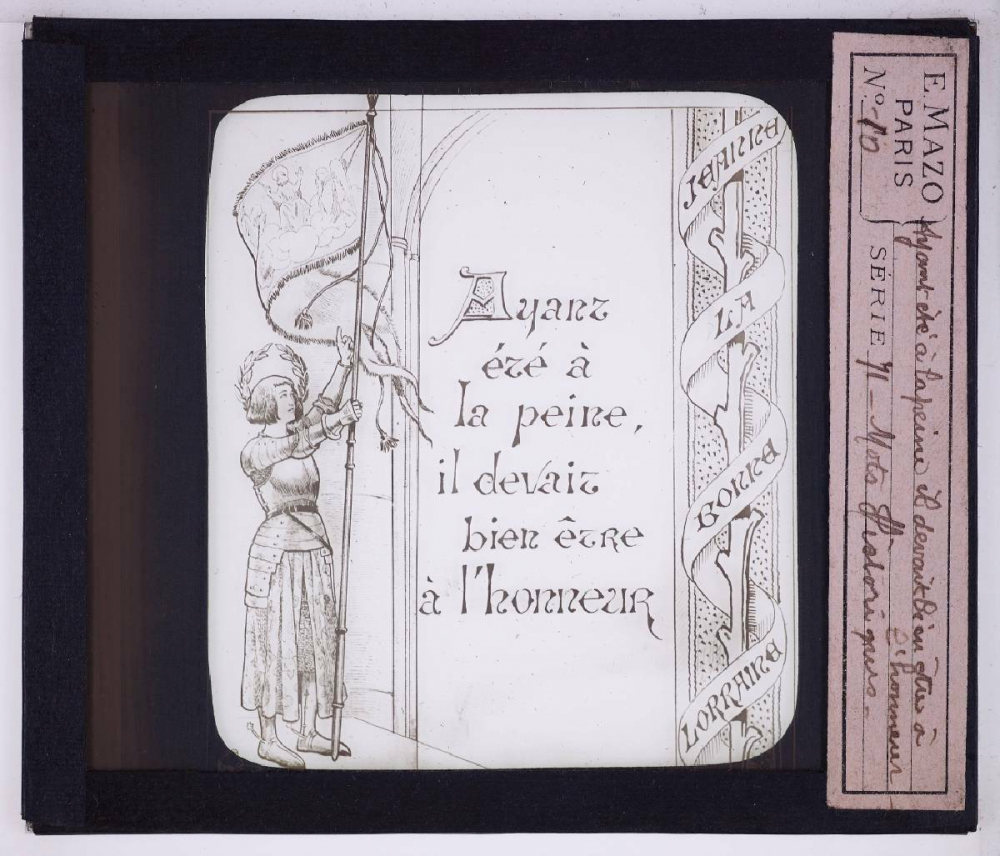 Ayant
été à
la peine,
il devait
bien être
à l'honneur
JEANNE
LA
BONNE
LORRAINE
E. MAZO
PARIS
No. 10
SÉRIE 71 - Mots Historiques -
Ayant été à la peine il devait bien être à
l'honneur